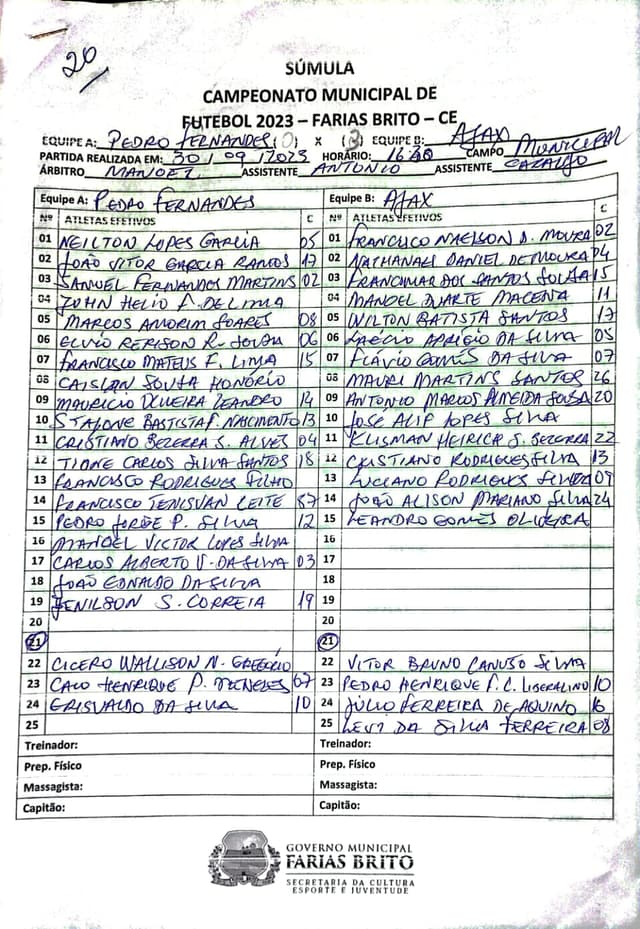 20
SÚMULA
CAMPEONATO MUNICIPAL DE
FUTEBOL 2023 – FARIAS BRITO – CE
EQUIPE A: PEDRO FERNANDES (0) X (3) EQUIPE B: AJAX
PARTIDA REALIZADA EM: 30/09/2023 HORÁRIO: 16:30 CAMPO MUNICIPAL
ÁRBITRO MANOEL ASSISTENTE ANTONIO ASSISTENTE
Equipe A: PEDRO FERNANDES Equipe B: AJAX
Nº ATLETAS EFETIVOS C Nº ATLETAS EFETIVOS C
01 NEILTON LOPES GARCIA 05 01 FRANCISCO NAELSON D. MOURA 02
02 JOÃO VITOR GARCIA RAMOS 17 02 NATHANAEL DANIEL DE MOURA 04
03 SAMUEL FERNANDES MARTINS 02 03 FRANCIMAR DOS SANTOS SOUSA 15
04 JOHN HELIO F. DE LIMA 04 MANOEL DUARTE MACENA 11
05 MARCOS AMORIM SOARES 08 05 WILTON BATISTA SANTOS 17
06 ELVIO RERISON R. SOUSA 06 06 APRIGIO DA SILVA 05
07 FRANCISCO MATEUS F. LIMA 15 07 FLÁVIO GOMES DA SILVA 07
08 CAISLAN SOUSA HONÓRIO 08 MAURI MARTINS SANTOS 26
09 MAURICIO OLIVEIRA LEANDRO 14 09 ANTONIO MARCOS ALMEIDA SOUSA 20
10 BASTISTA F. NASCIMENTO 13 10 JOSÉ ALIP LOPES SILVA
11 CRISTIANO BEZERRA S. ALVES 04 11 KLISMAN HEIRICK S. BEZERRA 22
12 TIONE CARLOS SILVA SANTOS 18 12 CRISTIANO RODRIGUES SILVA 13
13 FRANCISCO RODRIGUES FILHO 13 LUCIANO RODRIGUES 09
14 FRANCISCO TENISVAN LEITE 87 14 JOÃO ALISON MARIANO SILVA 24
15 PEDRO JORGE P. SILVA 12 15 LEANDRO GOMES OLIVEIRA
16 MANOEL VICTOR LOPES SILVA 16
17 CARLOS ALBERTO V. DA SILVA 03 17
18 JOÃO EDNALDO DA SILVA 18
19 JENILSON S. CORREIA 19 19
20 20
21 21
22 CICERO WALLISON N. GREGÓRIO 22 VITOR BRUNO CANUSO SILMA
23 CAIO HENRIQUE P. MENESES 07 23 PEDRO HENRIQUE F. C. LIBERALINO 10
24 ERISVALDO DA SILVA 10 24 JÚLIO FERREIRA DE AQUINO 16
25 25 LEVI DA SILVA FERREIRA 08
Treinador: Treinador:
Prep. Físico Prep. Físico
Massagista: Massagista:
Capitão: Capitão:
GOVERNO MUNICIPAL
FARIAS BRITO
SECRETARIA DA CULTURA
ESPORTE E JUVENTUDE